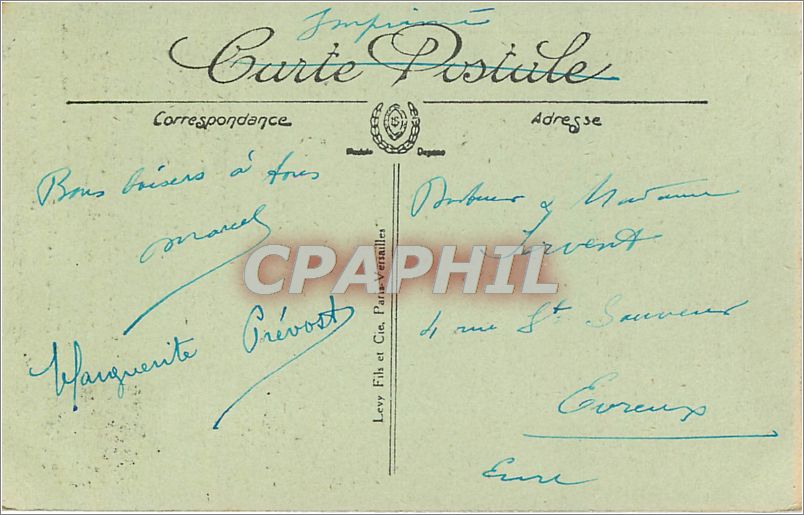 Imprimé
Carte Postale
Correspondance
Adresse
Bons baisers à tous
Marcel
Marguerite Prévost
Levy Fils et Cie, Paris-Versailles
CPAPHIL
& Madame
4 rue St Sauveur
Evreux
Eure